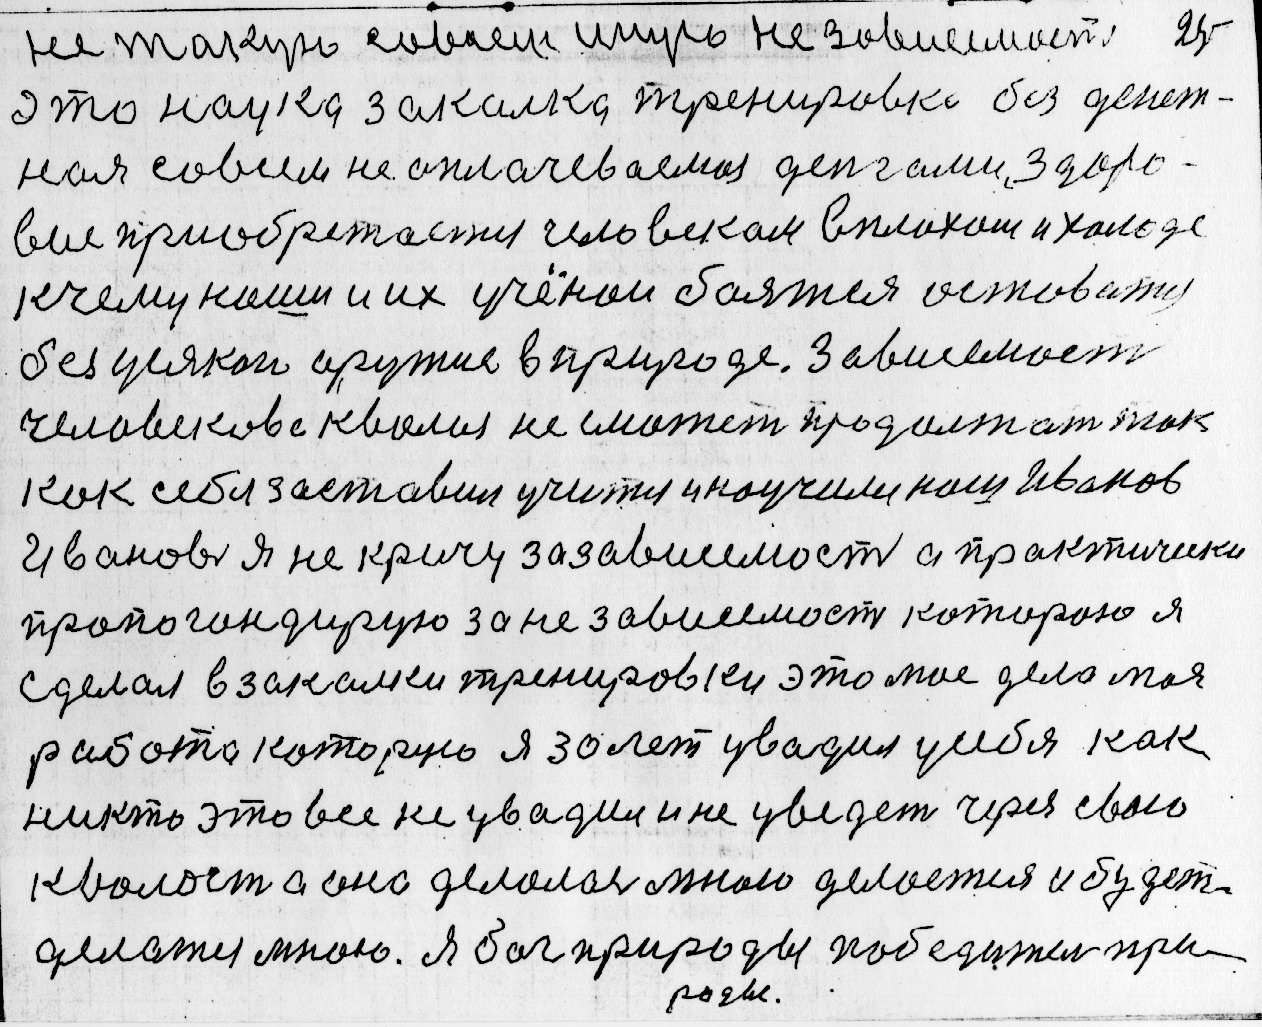 не такую совсем иную независемост 25
это наука закалка тренировка без денеж-
ная совсем не оплачеваемая денгами, здоро-
вие приобретается человекам в плохом и холоде
к чему наши и их учёнои боятся оставатся
без усякои оружие в природе. Зависемост
человекова кволая не сможет продолжат так
как себя заставил учится и научили наш Иванов
Иванова Я не кричу за зависемост а практически
пропогондирую за независемост которою я
сделал в закалки тренировки это мое дела моя
работа которую я 30 лет увадил у себя как
никто это все не увадил и не уведет через свою
кволост а она делалас мною делается и будет
делатся мною. Я бог природы победител при-
роды.